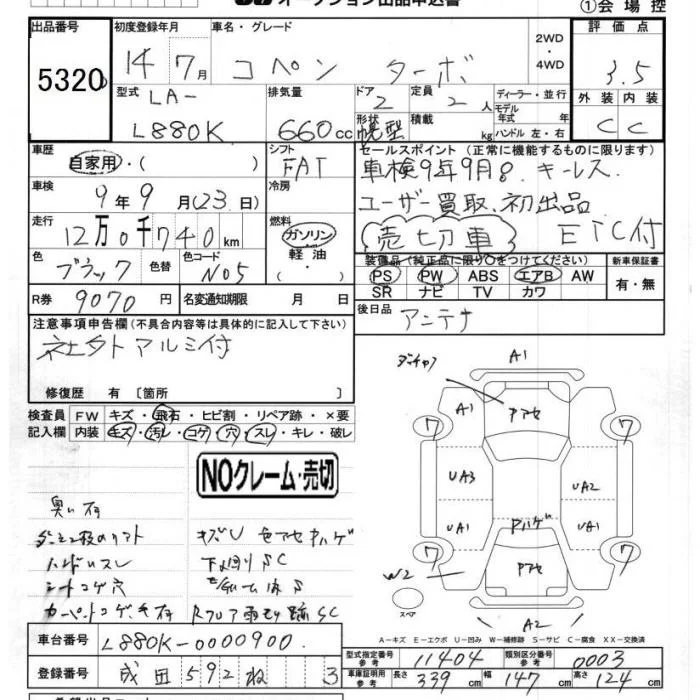 オークション出品申込書 ①会場控
出品番号 初度登録年月 車名・グレード 2WD・4WD 評価点
5320 14年 7月 コペン ターボ 3.5
型式 LA- L880K 排気量 660cc ドア 2 定員 2人 形状 幌型 積載 kg ディーラー・並行 モデル年式 年 ハンドル 左・右 外装 内装 C C
車歴 自家用・( ) シフト FAT セールスポイント(正常に機能するものに限ります)
車検 9年9月(23日) 冷房 車検9年9月 キーレス
ユーザー買取、初出品
走行 12万0千740km 燃料 ガソリン 軽油・( ) 売切車 ETC付
色 ブラック 色替 色コード N05 装備品(純正品に限り○をつけてください) 新車保証書
PS PW ABS エアB AW 有・無
SR ナビ TV カワ
R券 9070円 名変通知期限 月 日 後日品 アンテナ
注意事項申告欄(不具合内容等は具体的に記入して下さい)
社外アルミ付
修復歴 有 [箇所
検査員記入欄 FW キズ・飛石・ヒビ割・リペア跡・×要
内装 キズ・汚レ・コゲ・穴・スレ・キレ・破レ
NOクレーム・売切
臭い有
ハンドルスレ 下回りSC
シートコゲ穴
A1
A1 アセ
7 7
UA3 UA2
UA1 UA1
7 7
W2 アセ
スペア
A2
A−キズ E−エクボ U−凹み W−補修跡 S−サビ C−腐食 XX−交換済
車台番号 L880K-0000900
型式指定番号 参考 11404 類別区分番号 参考 0003
登録番号 成田 592 ね 3
車庫証明用 参考 長さ 339cm 幅 147cm 高さ 124cm